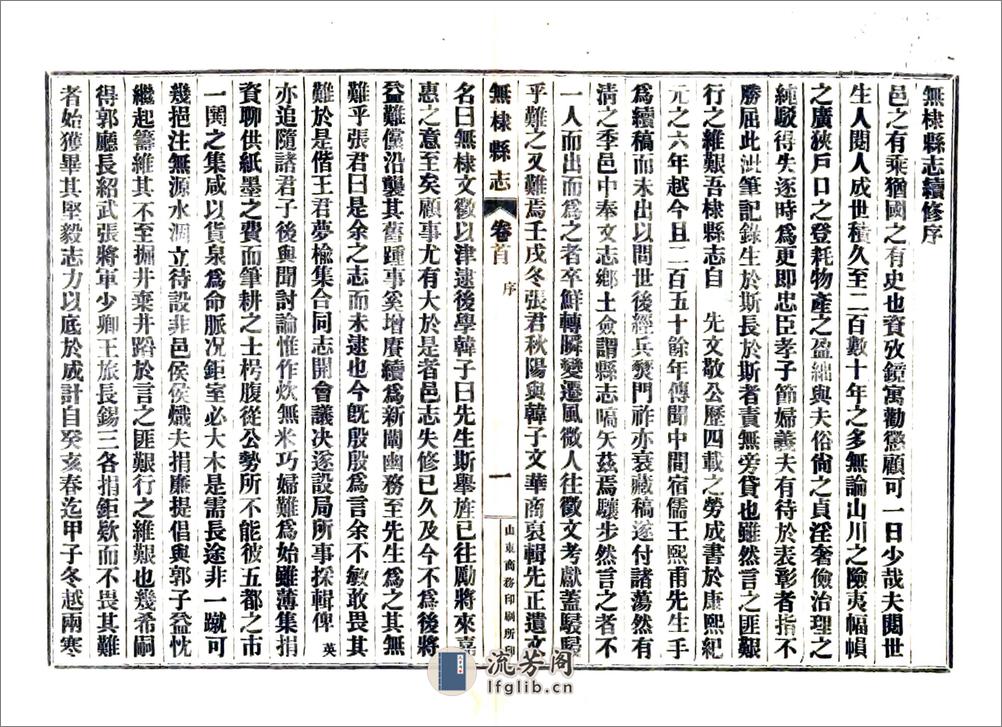 無棣縣志續修序
邑之有乘猶國之有史也資攷鏡寓勸懲顧可一日少哉夫閱世
生人閱人成世積久至二百數十年之多無論山川之險夷幅幀
之廣狹戶口之登耗物產之盈絀與夫俗尙之貞淫奢儉治理之
純駁得失逐時爲更即忠臣孝子節婦義夫有待於表彰者指不
勝屈此泚筆記錄生於斯長於斯者責無旁貸也雖然言之匪艱
行之維艱吾棣縣志自 先文敬公歷四載之勞成書於康熙紀
元之六年越今且二百五十餘年傳聞中間宿儒王熙甫先生手
爲續稿而未出以問世後經兵燹門祚亦衰藏稿遂付諸蕩然有
清之季邑中奉文志鄉土僉謂縣志嚆矢茲焉驤步然言之者不
一人而出而爲之者卒鮮轉瞬變遷風微人往徵文考獻蓋駸駸
乎難之又難焉壬戌冬張君秋陽與韓子文華商裒輯先正遺文
無棣縣志
卷首
序
一
山東商務印刷所印
名曰無棣文徵以津逮後學韓子曰先生斯舉旌已往勵將來嘉
惠之意至矣顧事尤有大於是者邑志失修已久及今不爲後將
益難儻沿襲其舊踵事奚增賡續爲新闡幽務至先生爲之其無
難乎張君曰是余之志而未逮也今旣殷殷爲言余不敏敢畏其
難於是偕王君夢楡集合同志開會議决遂設局所事採輯俾 英
亦追隨諸君子後與聞討論惟作炊無米巧婦難爲始雖薄集捐
資聊供紙墨之費而筆耕之士枵腹從公勢所不能彼五都之市
一鬨之集咸以貨泉爲命脈况鉅室必大木是需長途非一蹴可
幾挹注無源水涸立待設非邑侯侯熾夫捐廉提倡與郭子益忱
繼起籌維其不至掘井棄井蹈於言之匪艱行之維艱也幾希嗣
得郭廳長紹武張將軍少卿王旅長錫三各捐鉅欵而不畏其難
者始獲畢其堅毅志力以底於成計自癸亥春迄甲子冬越兩寒
流芳閣
lfglib.cn